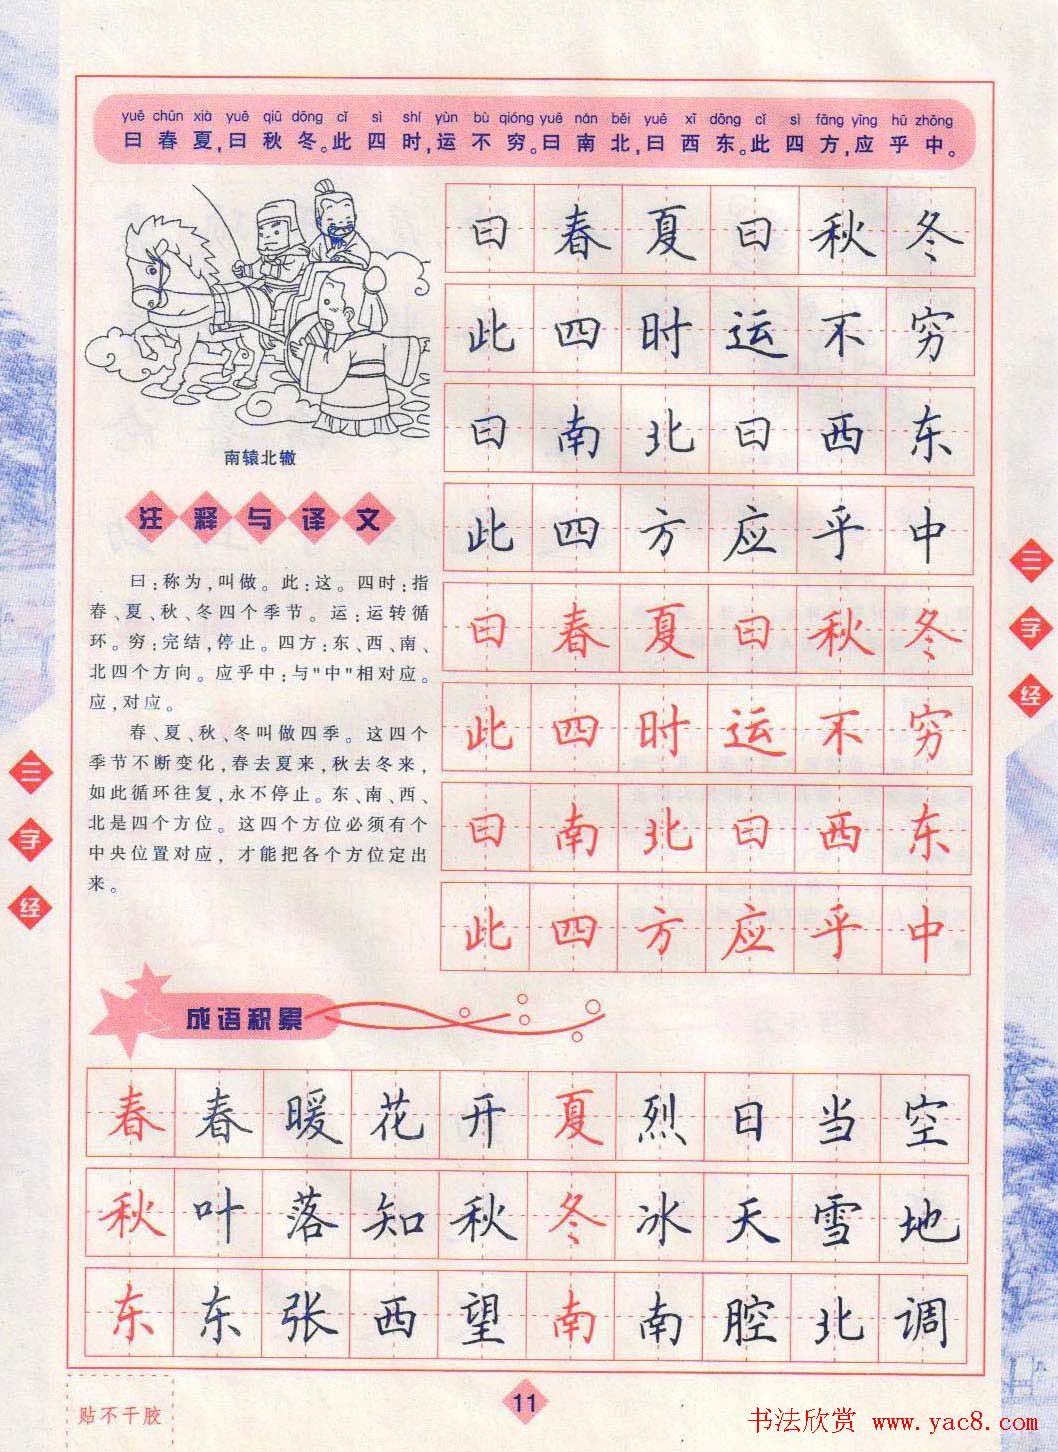 yuē chūn xià yuē qiū dōng cǐ sì shí yùn bù qióng yuē nán běi yuē xī dōng cǐ sì fāng yīng hū zhōng
曰春夏,曰秋冬。此四时,运不穷。曰南北,曰西东。此四方,应乎中。
南辕北辙
注释与译文
曰:称为,叫做。此:这。四时:指
春、夏、秋、冬四个季节。运:运转循
环。穷:完结,停止。四方:东、西、南、
北四个方向。应乎中:与"中"相对应。
应,对应。
春、夏、秋、冬叫做四季。这四个
季节不断变化,春去夏来,秋去冬来,
如此循环往复,永不停止。东、南、西、
北是四个方位。这四个方位必须有个
中央位置对应,才能把各个方位定出
来。
曰春夏曰秋冬
此四时运不穷
曰南北曰西东
此四方应乎中
曰春夏曰秋冬
此四时运不穷
曰南北曰西东
此四方应乎中
三字经
三字经
成语积累
春春暖花开夏烈日当空
秋叶落知秋冬冰天雪地
东东张西望南南腔北调
贴不干胶
11
书法欣赏 www.yac8.com